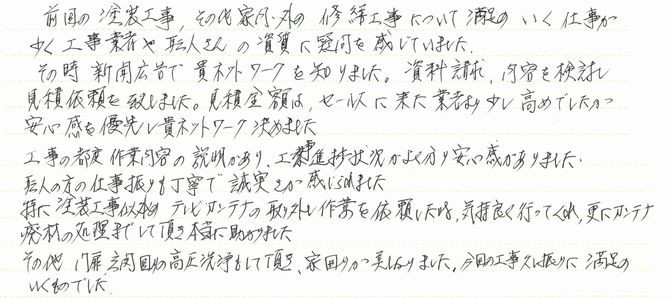 前回の塗装工事、その他家内・外の修繕工事について満足のいく仕事が
少く工事業者や職人さんの資質に疑問を感じていました。
その時新聞広告で貴ネットワークを知りました。資料請求、内容を検討し
見積依頼を致しました。見積金額は、セールスに来た業者より少し高めでしたが
安心感を優先し貴ネットワーク決めました
工事の都度作業内容の説明があり、工事進捗状況がよく分り安心感がありました。
職人の方の仕事振りも丁寧で誠実さが感じられました
特に塗装工事以外のテレビアンテナの取り外し作業を依頼した時、気持良く行ってくれ、更にアンテナ
廃材の処理までして頂き本当に助かりました
その他門扉、玄関回りの高圧洗浄もして頂き、家回りが美しくなりました。今回の工事久し振りに満足の
いくものでした。